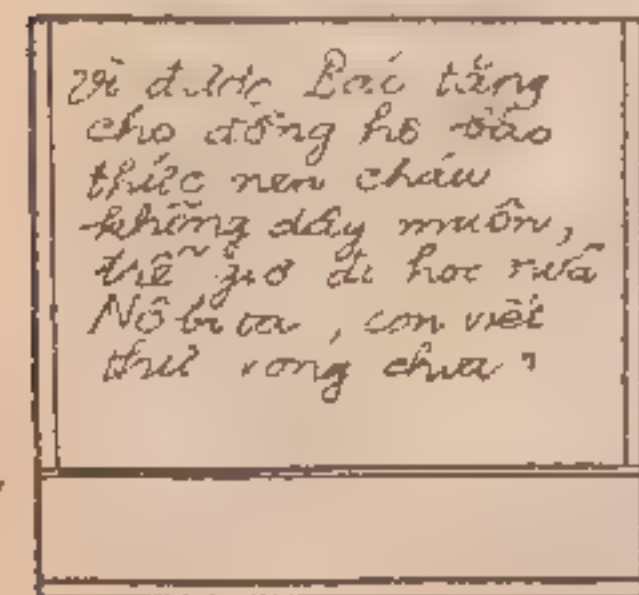 Vì được Bác tặng
cho đồng hồ báo
thức nên cháu
không dậy muộn,
trễ giờ đi học nữa
Nôbita, con viết
thư xong chưa?